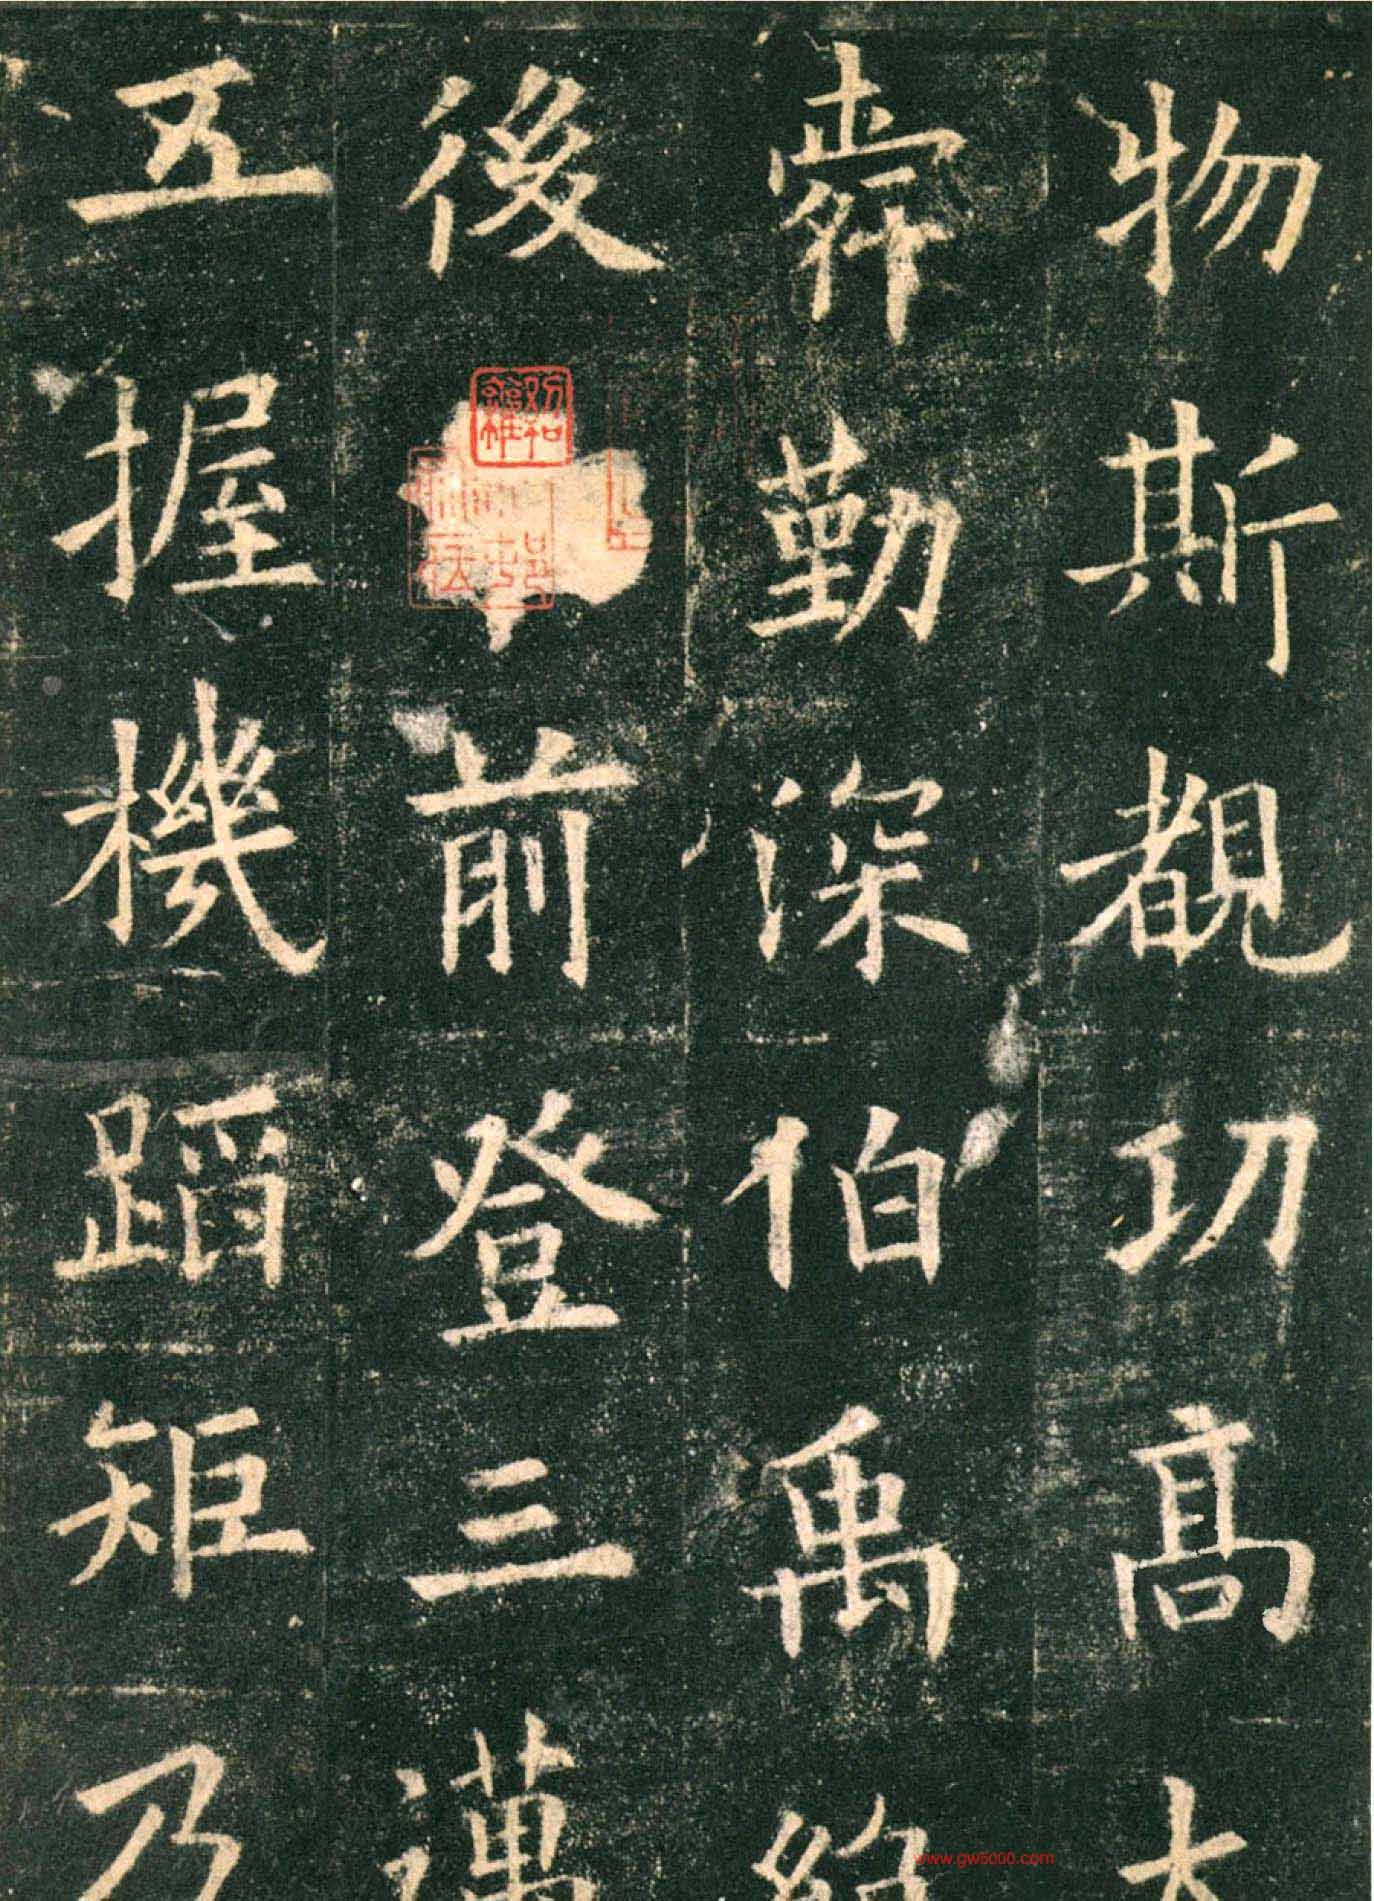 物斯覩功高大
舜勤深伯禹絶
後前登三邁
五握機蹈矩乃
www.gw5000.com